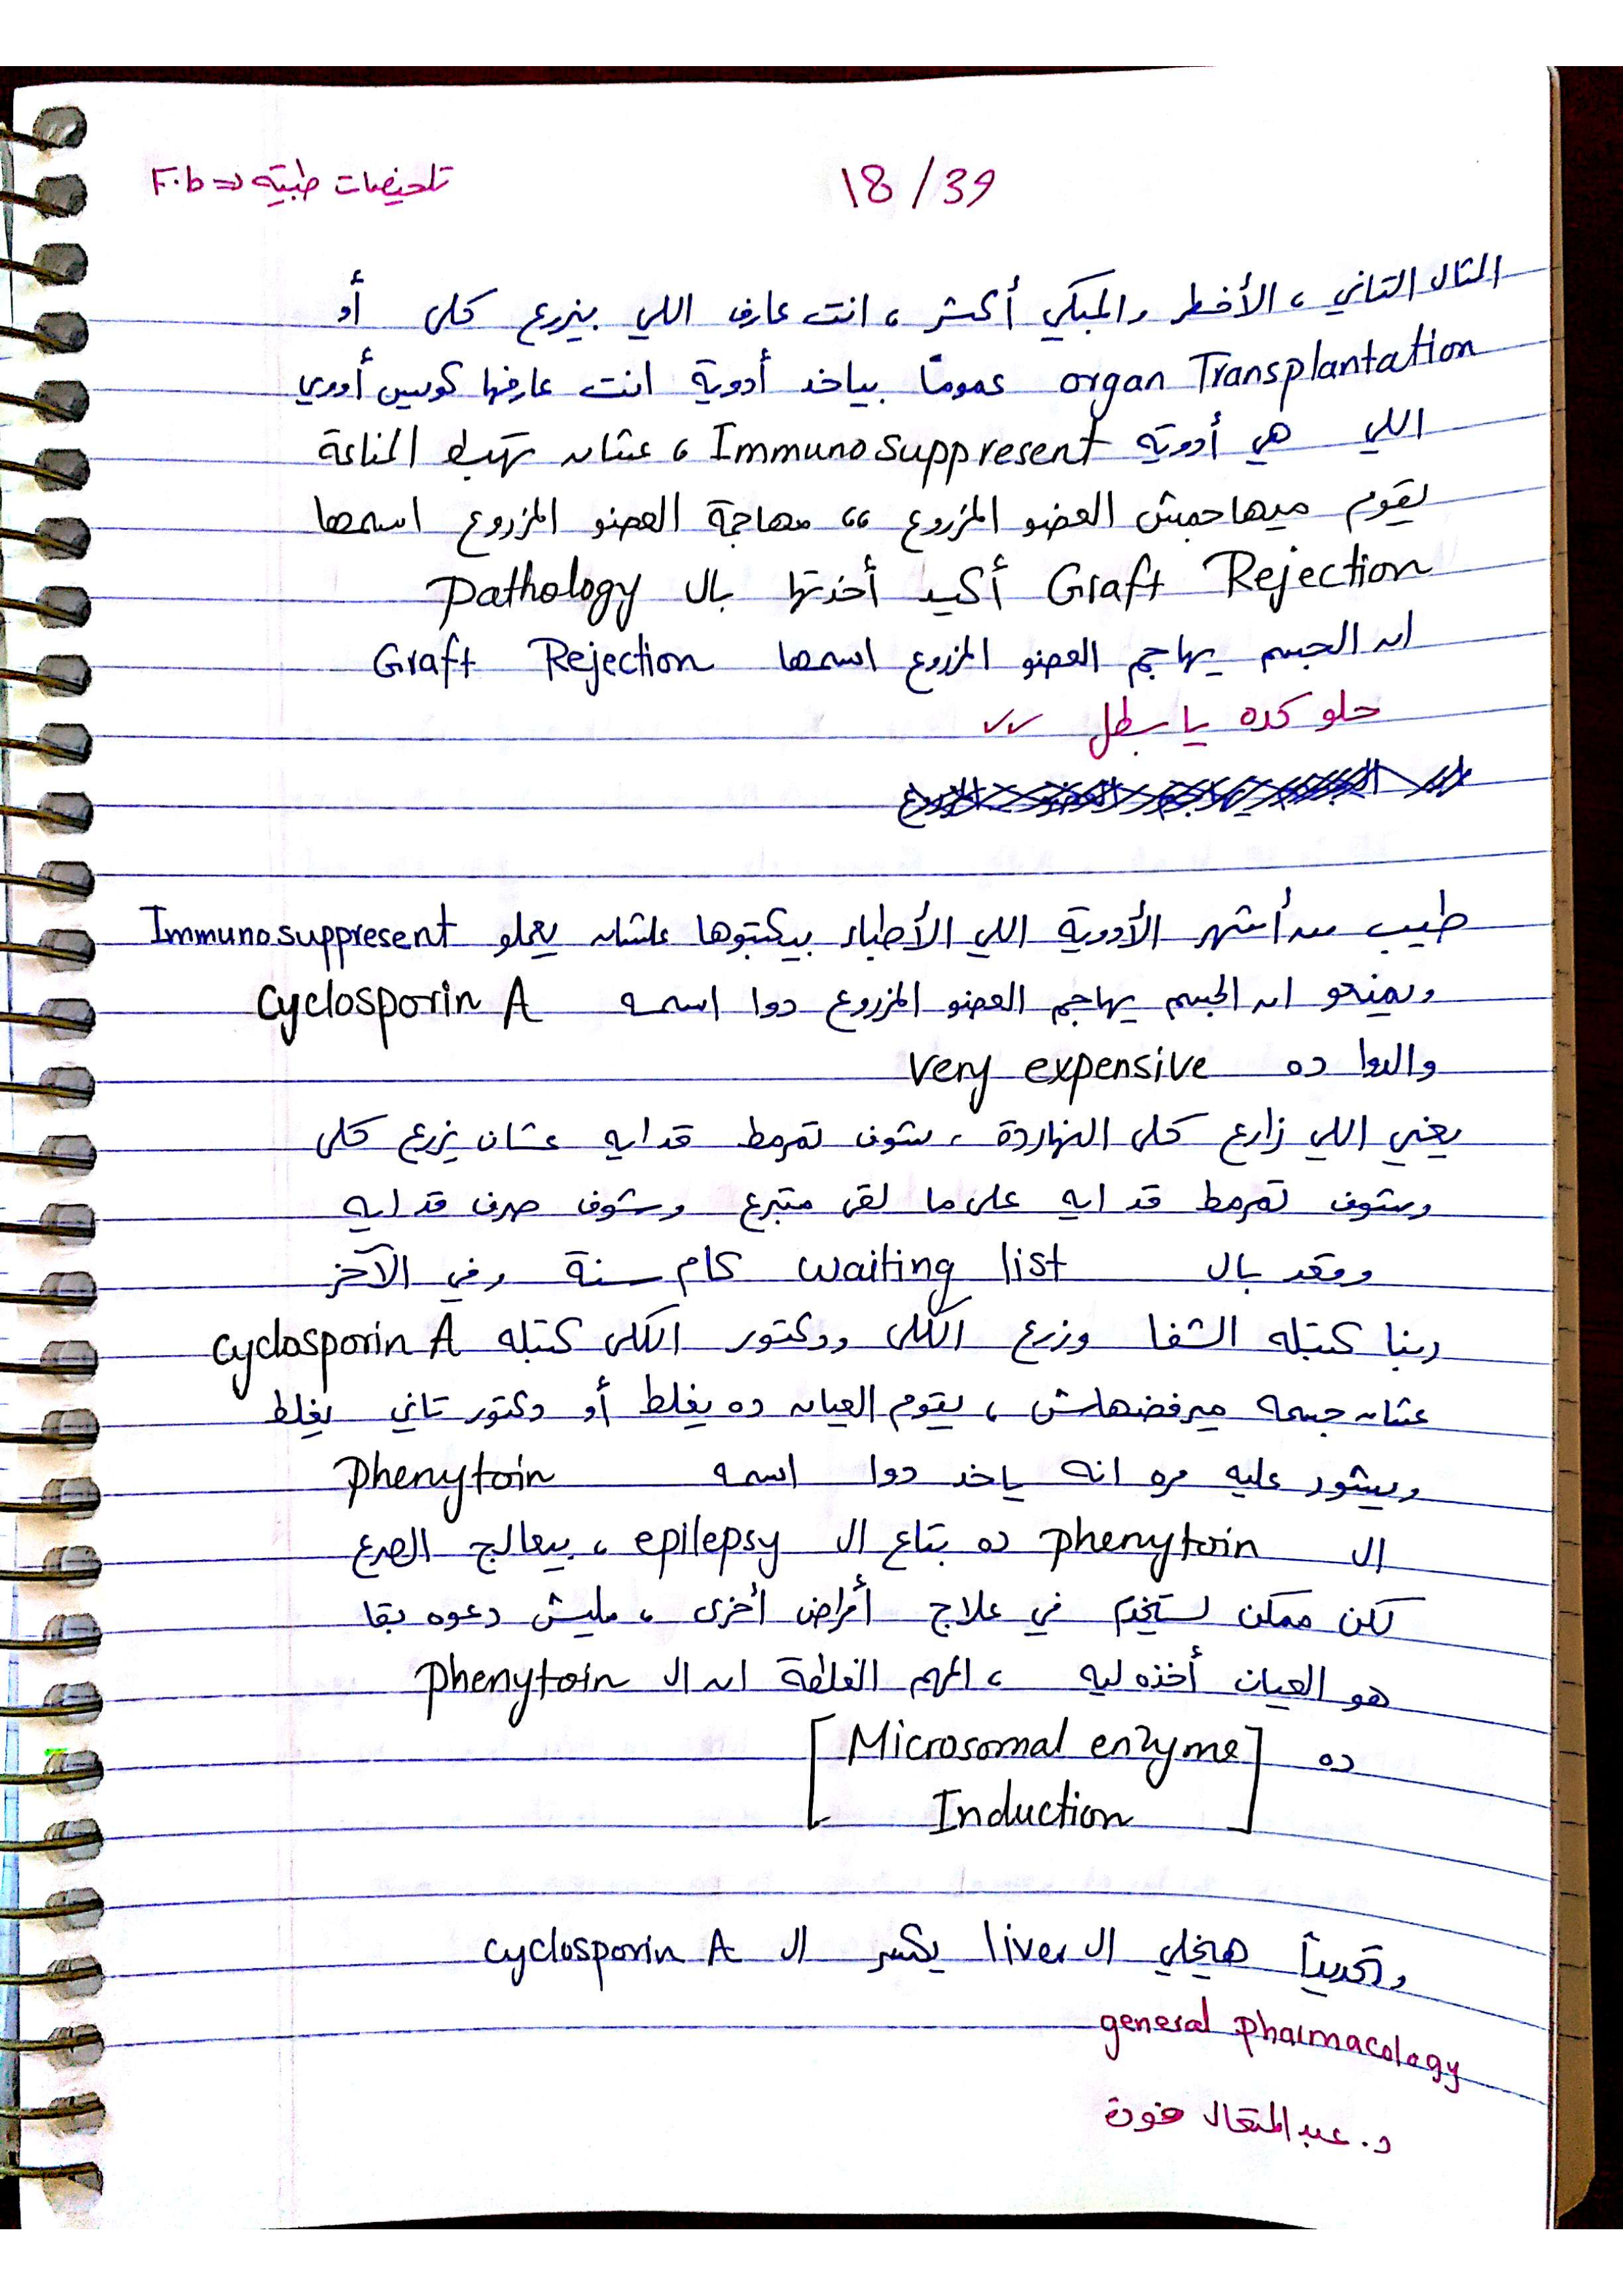 تلخيصات طبية => F.b
18/39
المثال التاني ، الأخطر والمبكي أكتر ، انت عارف اللي بيزرع كلى أو
organ Transplantation عموماً بياخد أدوية انت عارفها كويس أووي
اللي هي أدوية Immunosuppresent ، عشان تهبط المناعة
يقوم ميهاجمش العضو المزروع ،، مهاجمة العضو المزروع اسمها
Graft Rejection أكيد أخذتها بال pathology
ان الجسم يهاجم العضو المزروع اسمها Graft Rejection
حلو كده يا بطل ✓✓
طيب من أشهر الأدوية اللي الأطباء بيكتبوها علشان يعملو Immunosuppresent
ويمنعو ان الجسم يهاجم العضو المزروع دوا اسمه cyclosporin A
والدوا ده very expensive
يعني اللي زارع كلى النهاردة ، شوف تمرمط قد ايه عشان يزرع كلى
وشوف تمرمط قد ايه على ما لقى متبرع وشوف صرف قد ايه
وقعد بال waiting list كام سنة وفي الآخر
ربنا كتبله الشفا وزرع الكلى ودكتور الكلى كتبله cyclosporin A
عشان جسمه ميرفضهاش ، يقوم العيان ده يغلط أو دكتور تاني يغلط
ويشور عليه مره انه ياخد دوا اسمه phenytoin
ال phenytoin ده بتاع ال epilepsy ، بيعالج الصرع
لكن ممكن يستخدم في علاج أمراض أخرى ، مليش دعوه بقا
هو العيان أخذه ليه ، المهم الغلطة ان ال phenytoin
ده [Microsomal enzyme
Induction]
وتحديداً هيخلي ال liver يكسر ال cyclosporin A
general pharmacology
د. عبدالمتعال فودة